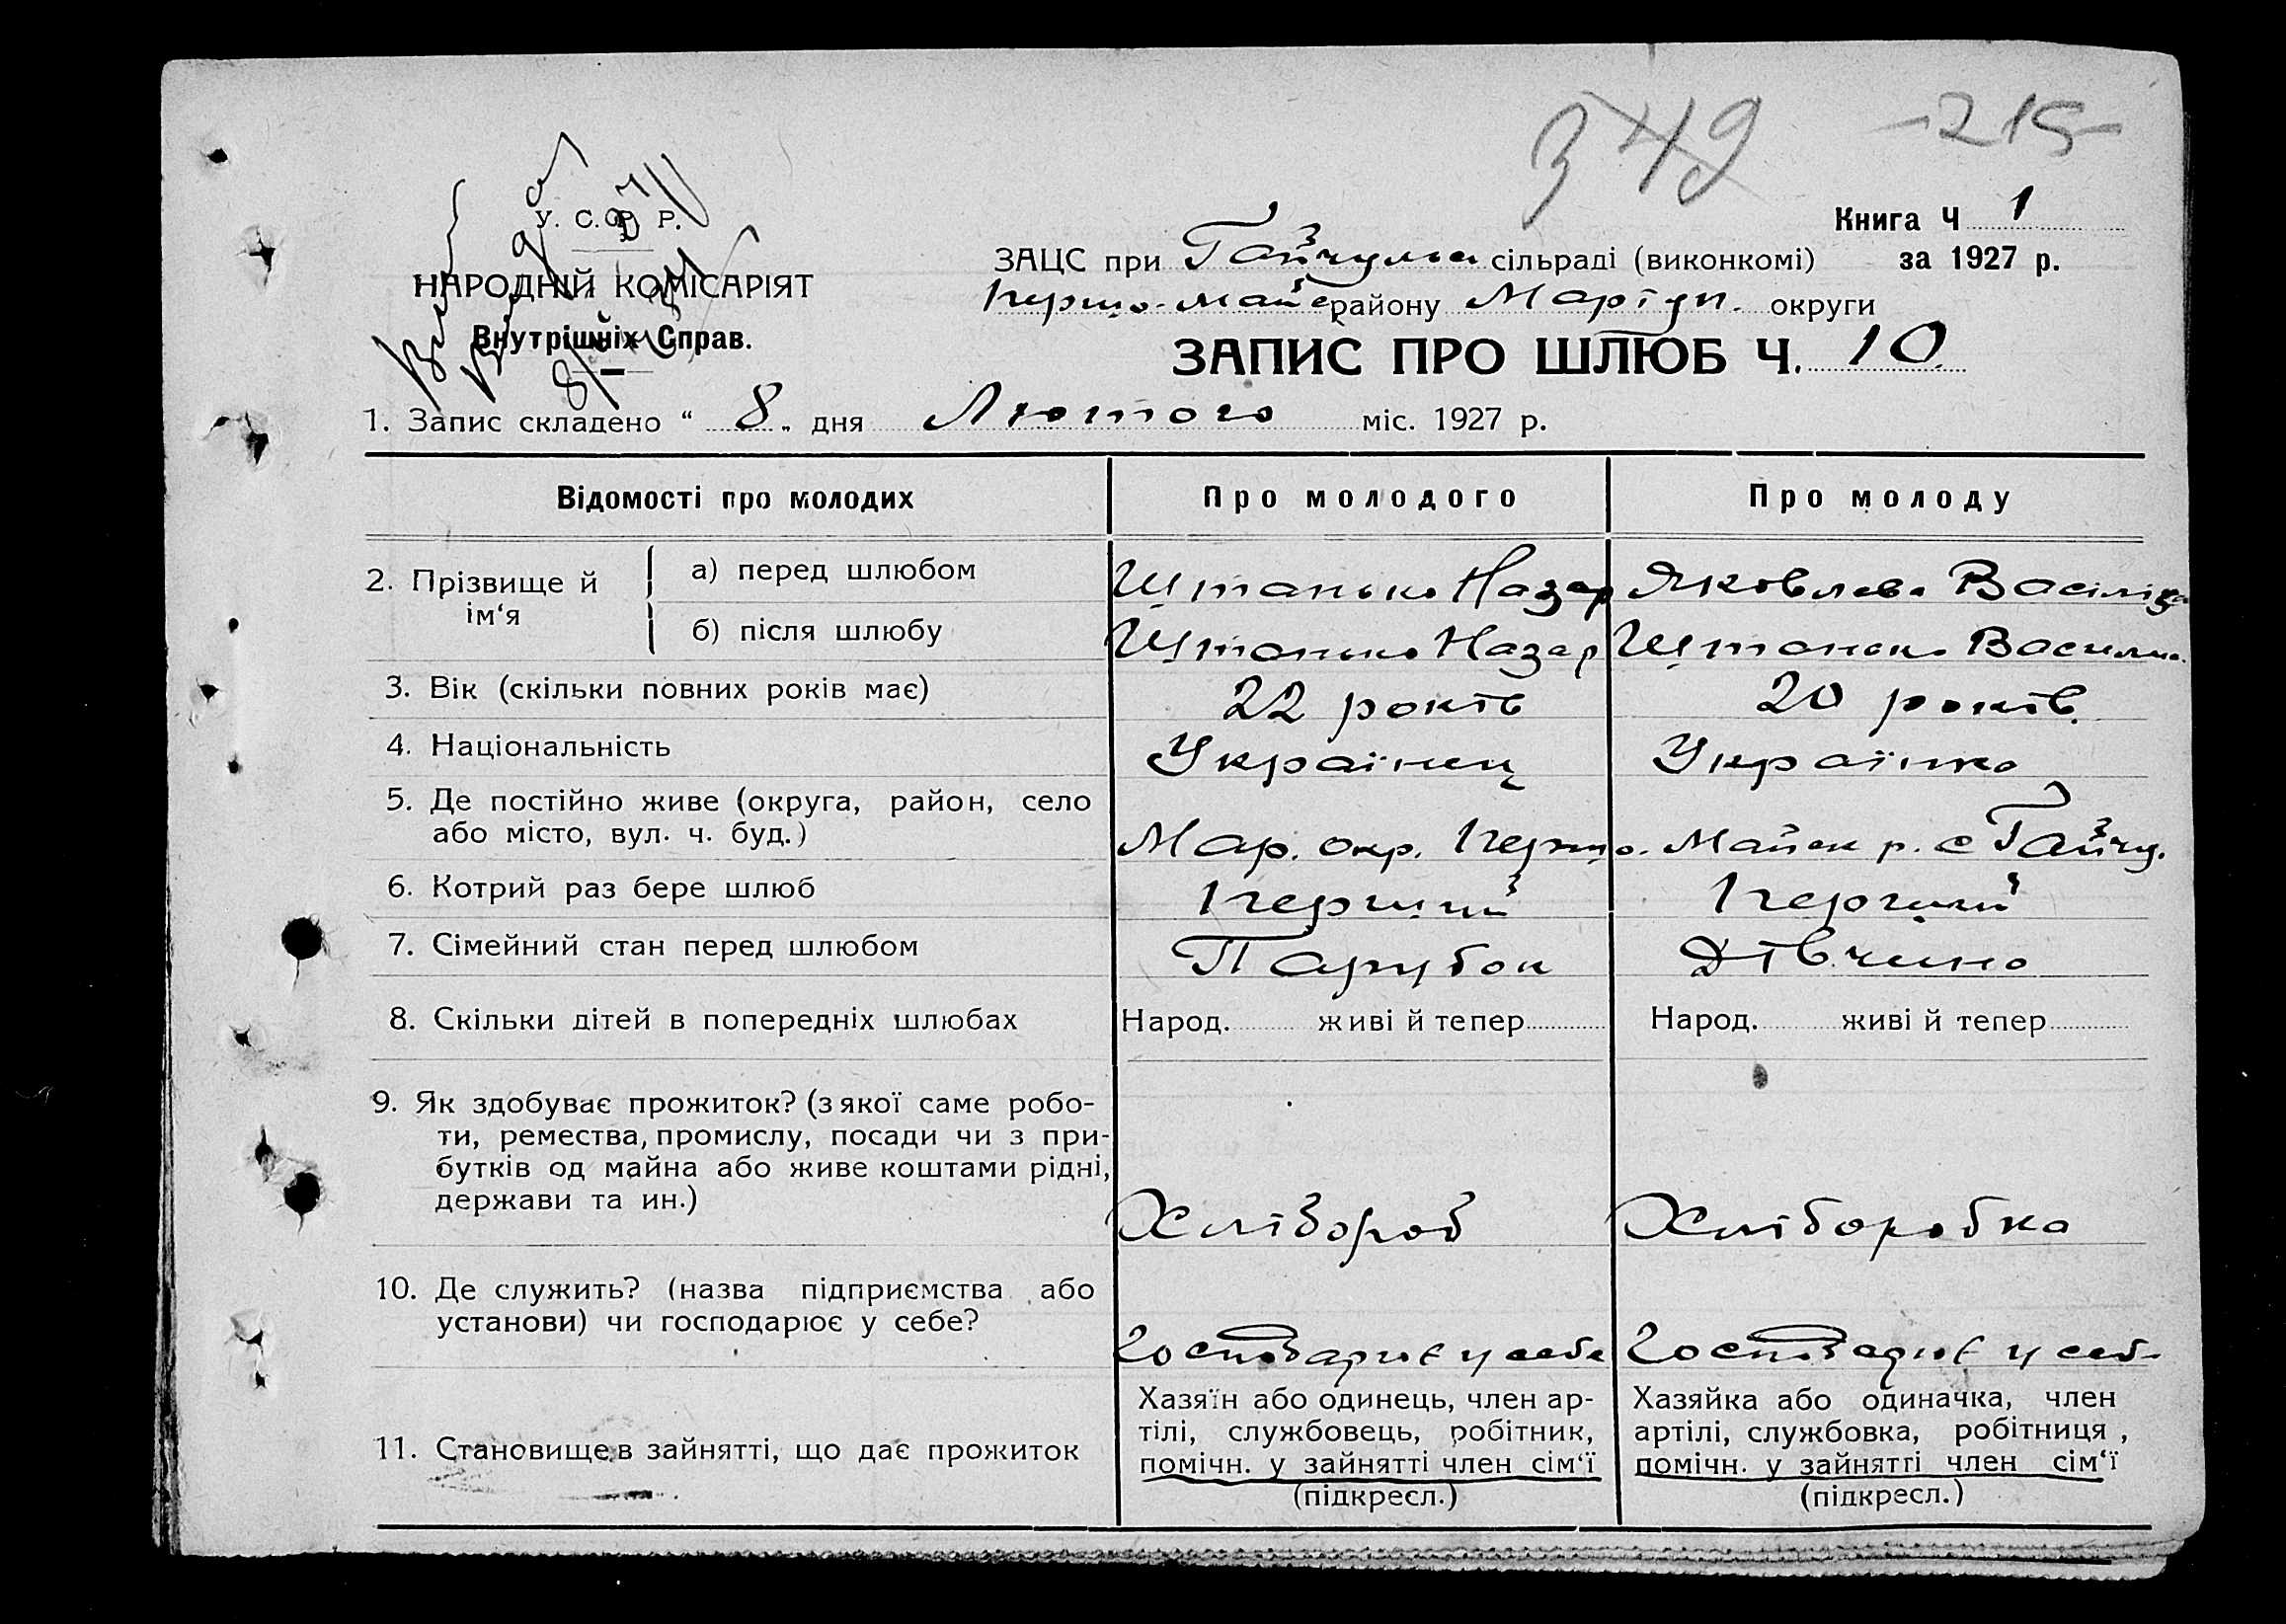 349 -215-
У. С. Р. Р.
Книга Ч 1
ЗАЦС при Гайчульс сільраді (виконкомі) за 1927 р.
НАРОДНІЙ КОМІСАРІЯТ
Першо-Майс району Маріуп. округи
Внутрішніх Справ.
ЗАПИС ПРО ШЛЮБ Ч. 10
1. Запис складено “ 8 „ дня Лютого міс. 1927 р.
Відомості про молодих Про молодого Про молоду
2. Прізвище й ім‘я
а) перед шлюбом Штанько Назар Яковлева Василіса
б) після шлюбу Штанько Назар Штанько
3. Вік (скільки повних років має) 22 років 20 років
4. Національність Українец Українка
5. Де постійно живе (округа, район, село
або місто, вул. ч. буд.) Мар. окр. Першо. Майск р. с Гайчу.
6. Котрий раз бере шлюб Перший Перший
7. Сімейний стан перед шлюбом Парубок Дівчина
8. Скільки дітей в попередніх шлюбах Народ. живі й тепер Народ. живі й тепер
9. Як здобуває прожиток? (з якої саме робо-
ти, ремества, промислу, посади чи з при-
бутків од майна або живе коштами рідні,
держави та ин.) Хлібороб Хліборобка
10. Де служить? (назва підприємства або
установи) чи господарює у себе? Господарює у себе Господарює у себ.
11. Становище в зайнятті, що дає прожиток
Хазяїн або одинець, член ар-
тілі, службовець, робітник,
помічн. у зайнятті член сім‘ї
(підкресл.)
Хазяйка або одиначка, член
артілі, службовка, робітниця,
помічн. у зайнятті член сім‘ї
(підкресл.)